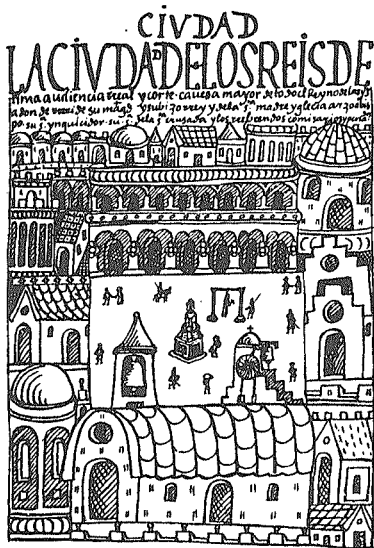 CIVDAD
LACIVDADDELOSREISDE
lima audiencia rreal y corte caueza mayor de todo el Reyno de las
a don de su mag^d y su bizorrey y dela s^ta madre yglecia arzobis
po su s. ynquicidor su s. dela s^ta crusada y los comisarios